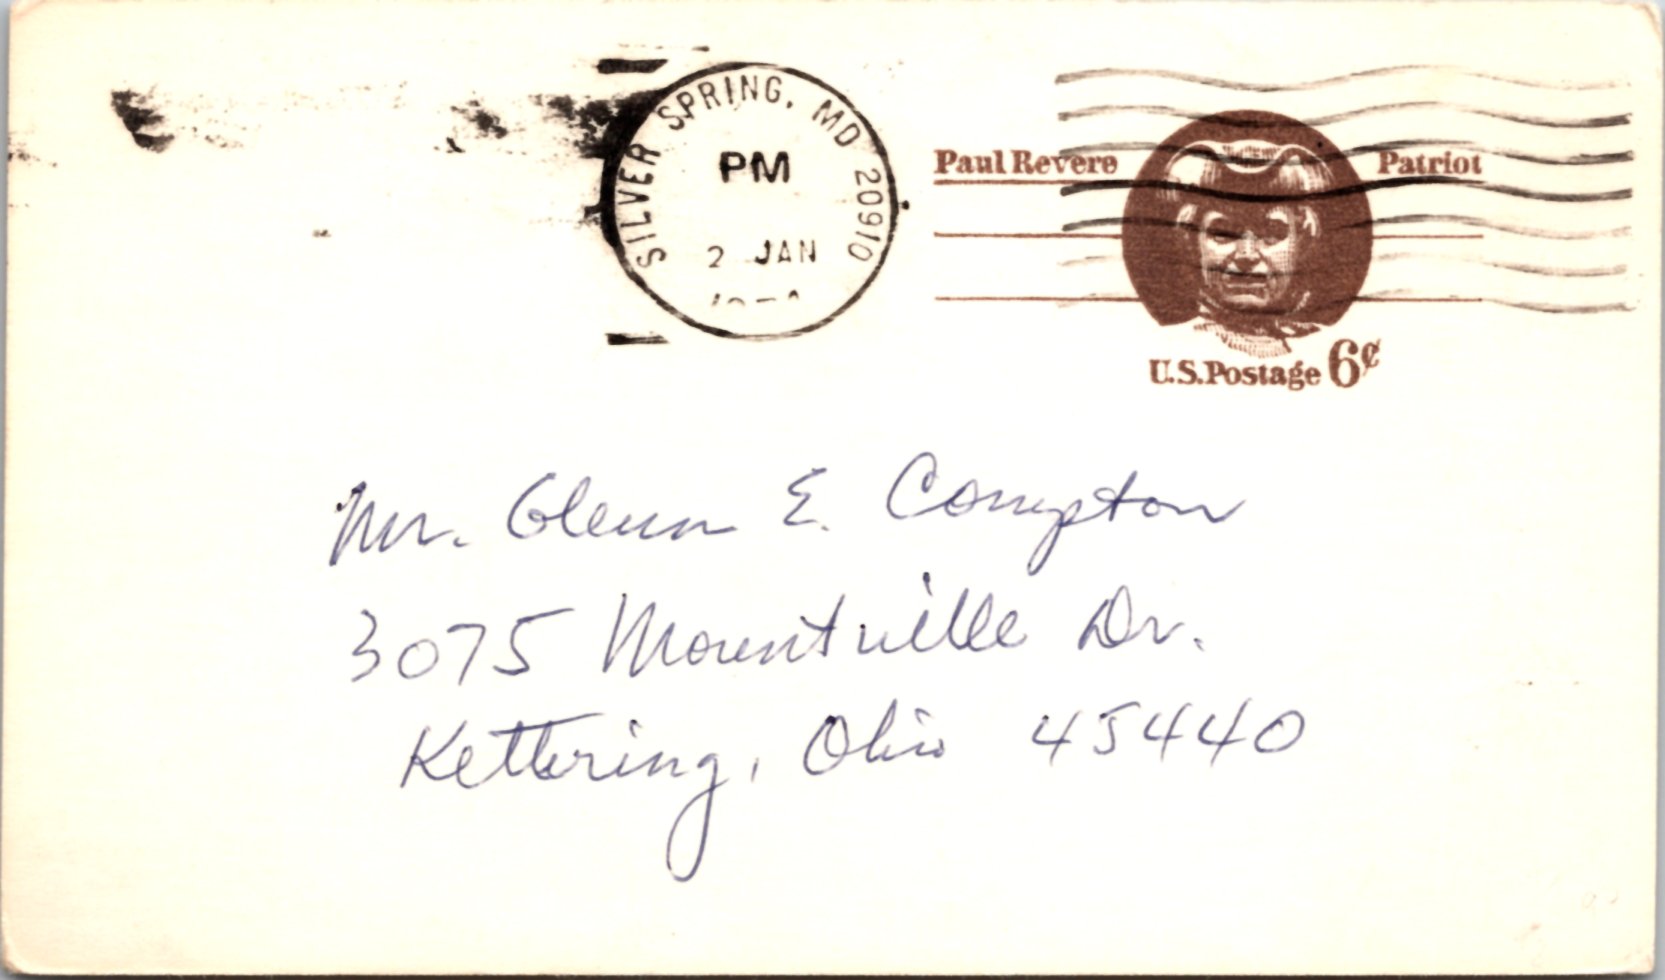 SILVER SPRING, MD 20910
PM
2 JAN
Paul Revere Patriot
U.S. Postage 6¢
Mr. Glenn E. Compton
3075 Mountville Dr.
Kettering, Ohio 45440